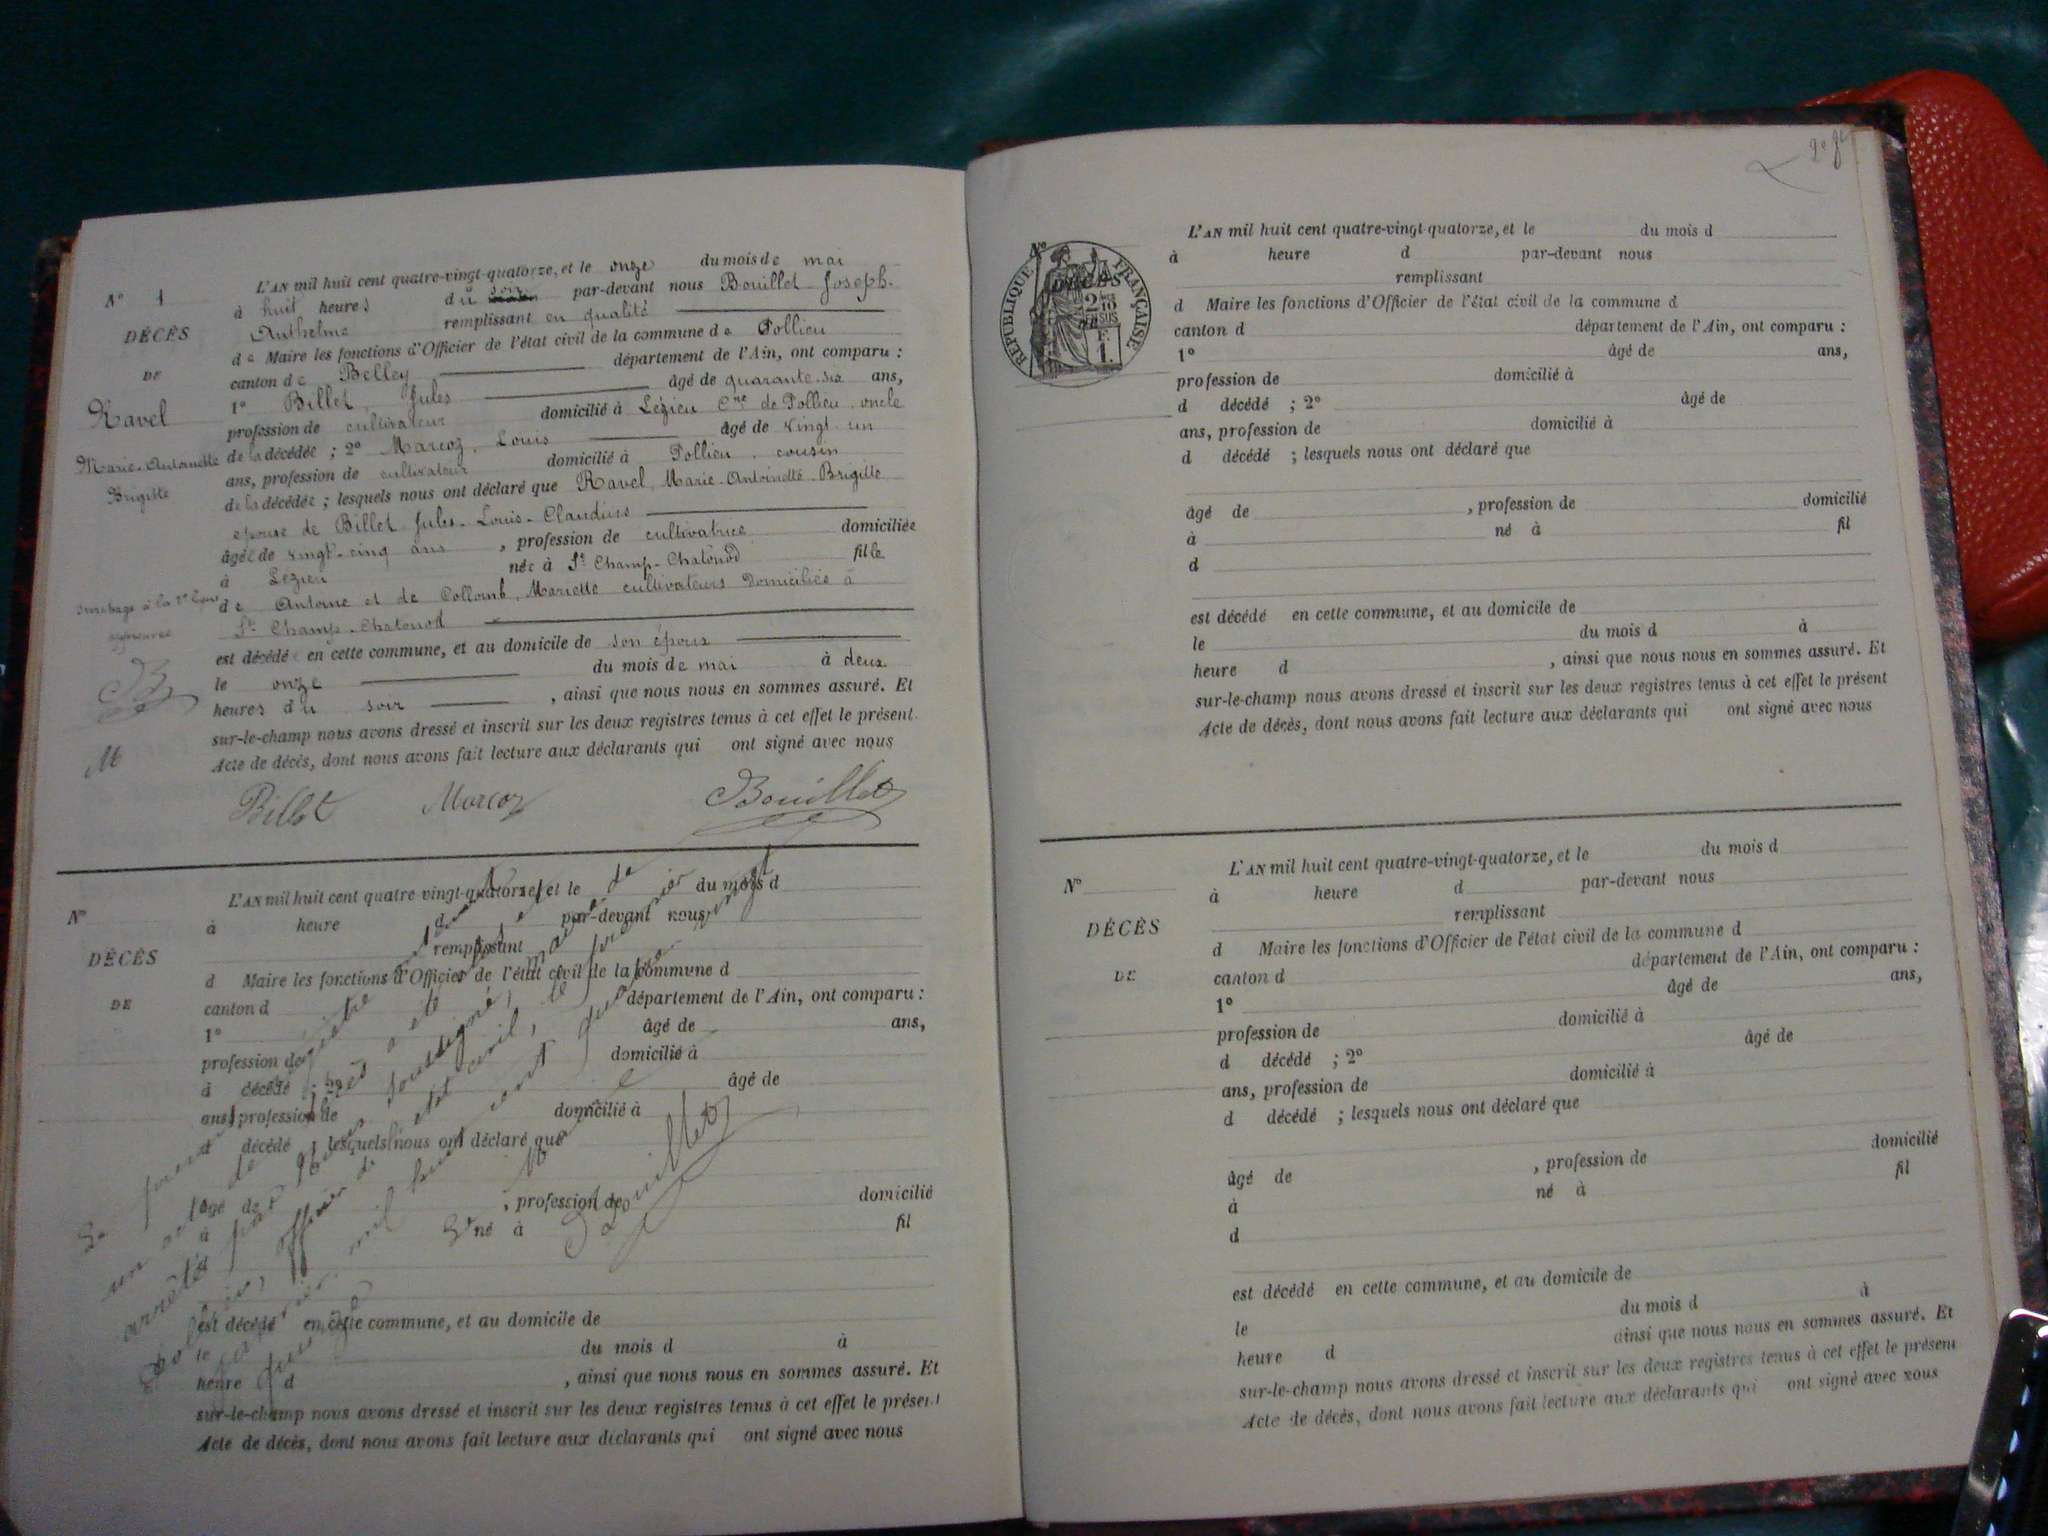 L'AN mil huit cent quatre-vingt-quatorze, et le onze du mois de mai
N° 1 à huit heures du soir par-devant nous Bouillet Joseph
Anthelme remplissant en qualité
DÉCÈS de Maire les fonctions d'Officier de l'état civil de la commune de Pollieu
DE canton de Belley département de l'Ain, ont comparu :
1° Billet, Jules âgé de quarante-six ans,
Ravel profession de cultivateur domicilié à Lézieu Cne de Pollieu, oncle
Marie-Antoinette de la décédée ; 2° Marcoz, Louis âgé de vingt-un
Brigitte ans, profession de cultivateur domicilié à Pollieu, cousin
de la décédée ; lesquels nous ont déclaré que Ravel, Marie-Antoinette Brigitte
épouse de Billet Jules-Louis-Claudius
âgée de vingt-cinq ans, profession de cultivatrice domiciliée
à Lézieu née à St Champ-Chatonod fille
de Antoine et de Collomb, Mariette cultivateurs domiciliés à
St Champ-Chatonod
surcharge à la 2e ligne
approuvée
est décédée en cette commune, et au domicile de son époux
le onze du mois de mai à deux
heures du soir, ainsi que nous nous en sommes assuré. Et
sur-le-champ nous avons dressé et inscrit sur les deux registres tenus à cet effet le présent
M
Acte de décès, dont nous avons fait lecture aux déclarants qui ont signé avec nous
Billet Marcoz Bouillet
L'AN mil huit cent quatre-vingt-quatorze, et le du mois d
N° à heure d par-devant nous
remplissant
DÉCÈS d Maire les fonctions d'Officier de l'état civil de la commune d
DE canton d département de l'Ain, ont comparu :
1° âgé de ans,
profession de domicilié à
d décédé ; 2° âgé de
ans, profession de domicilié à
d décédé ; lesquels nous ont déclaré que
âgé de , profession de domicilié
à né à fil
d
est décédé en cette commune, et au domicile de
le du mois d à
heure d , ainsi que nous nous en sommes assuré. Et
sur-le-champ nous avons dressé et inscrit sur les deux registres tenus à cet effet le présent
Acte de décès, dont nous avons fait lecture aux déclarants qui ont signé avec nous
arrêté par nous soussigné, maire de
Pollieu, officier de l'état civil, le premier
janvier mil huit cent quatre vingt
quinze
Le Maire
Bouillet
N°
RÉPUBLIQUE FRANÇAISE
DÉCÈS
L'AN mil huit cent quatre-vingt-quatorze, et le du mois d
à heure d par-devant nous
remplissant
d Maire les fonctions d'Officier de l'état civil de la commune d
canton d département de l'Ain, ont comparu :
1° âgé de ans,
profession de domicilié à
d décédé ; 2° âgé de
ans, profession de domicilié à
d décédé ; lesquels nous ont déclaré que
âgé de , profession de domicilié
à né à fil
d
est décédé en cette commune, et au domicile de
le du mois d à
heure d , ainsi que nous nous en sommes assuré. Et
sur-le-champ nous avons dressé et inscrit sur les deux registres tenus à cet effet le présent
Acte de décès, dont nous avons fait lecture aux déclarants qui ont signé avec nous
L'AN mil huit cent quatre-vingt-quatorze, et le du mois d
N° à heure d par-devant nous
remplissant
DÉCÈS d Maire les fonctions d'Officier de l'état civil de la commune d
DE canton d département de l'Ain, ont comparu :
1° âgé de ans,
profession de domicilié à
d décédé ; 2° âgé de
ans, profession de domicilié à
d décédé ; lesquels nous ont déclaré que
âgé de , profession de domicilié
à né à fil
d
est décédé en cette commune, et au domicile de
le du mois d à
heure d ainsi que nous nous en sommes assuré. Et
sur-le-champ nous avons dressé et inscrit sur les deux registres tenus à cet effet le présent
Acte de décès, dont nous avons fait lecture aux déclarants qui ont signé avec nous